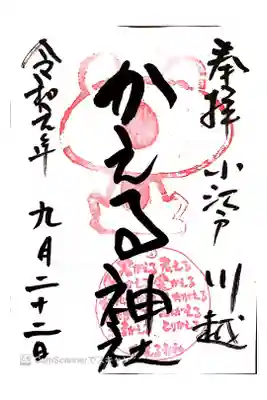 奉拝 小江戸 川越
かえる神社
令和元年 九月二十二日
CamScannerでスキャン